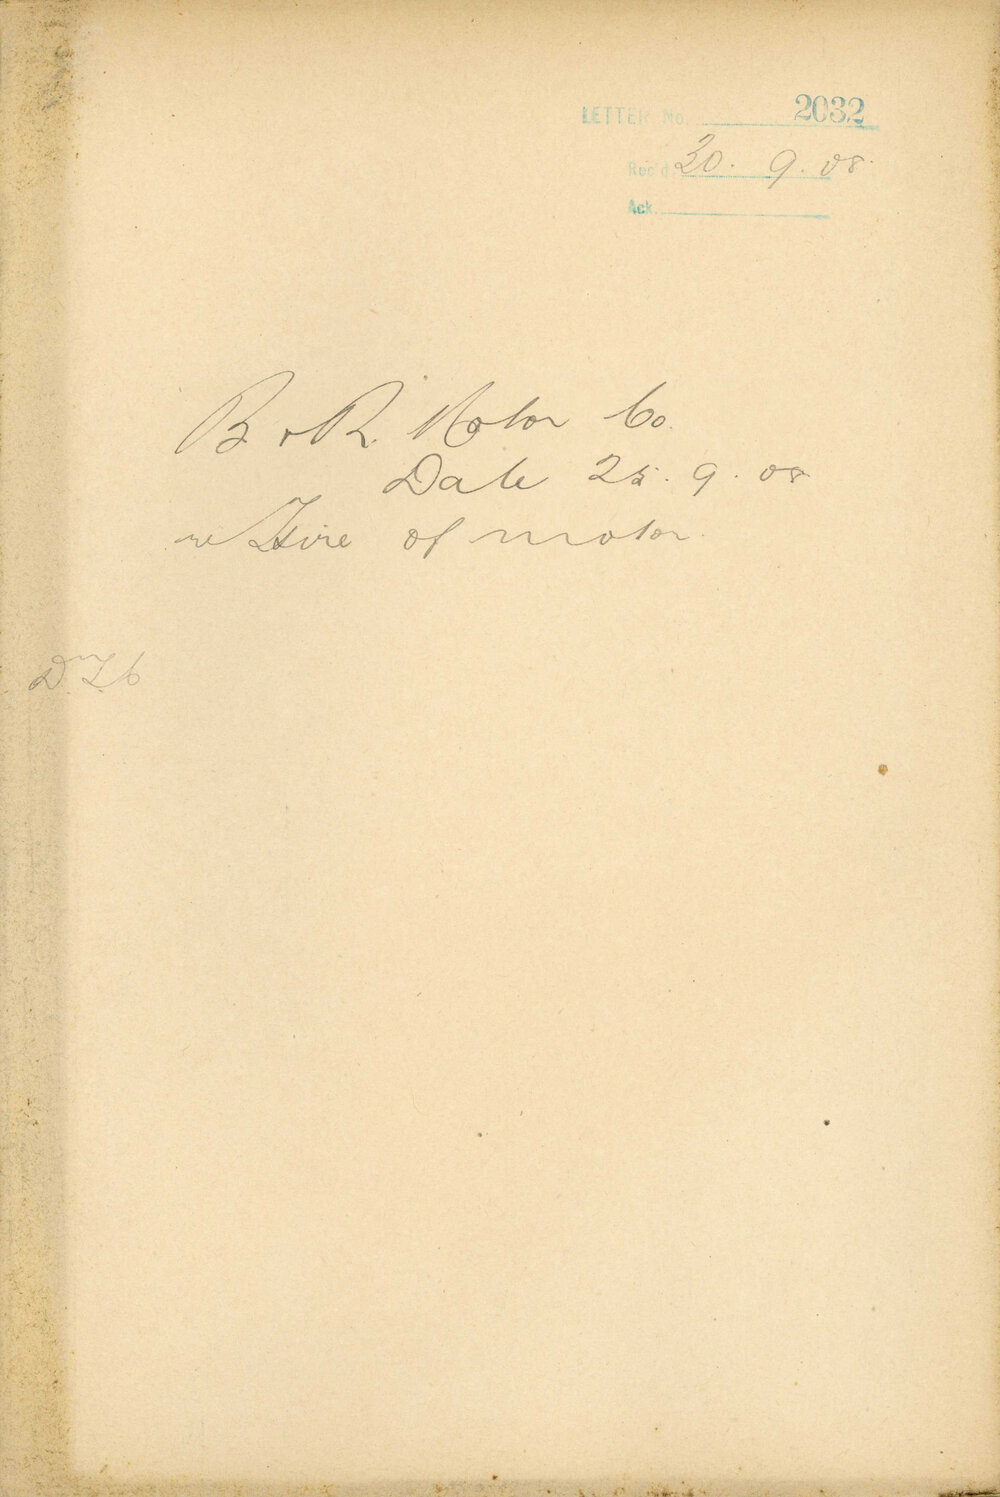 LETTER No. 2032
Rec'd 30. 9. 08.
Ack.
B. & R. Motor Co.
Date 25. 9. 08
re Hire of motor.